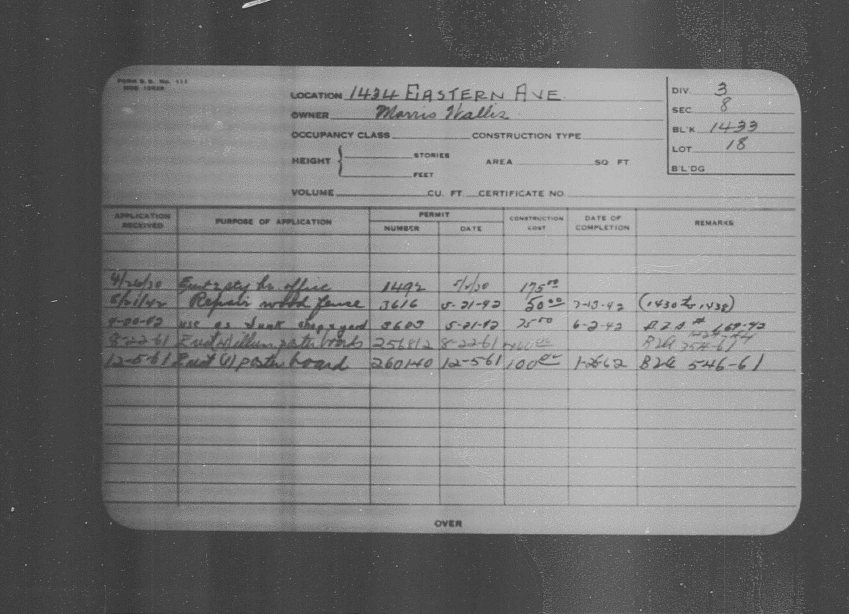 FORM B. B. No. 111
LOCATION 1434 EASTERN AVE. DIV. 3
OWNER Morris Wallis SEC. 8
OCCUPANCY CLASS CONSTRUCTION TYPE BL'K 1433
HEIGHT { STORIES AREA SQ FT LOT 18
FEET B'L'DG
VOLUME CU. FT. CERTIFICATE NO.
APPLICATION RECEIVED PURPOSE OF APPLICATION PERMIT NUMBER DATE CONSTRUCTION COST DATE OF COMPLETION REMARKS
4/26/20 office 1492 175 00
5/21/42 Repair wood fence 3616 5-21-42 50 00 7-13-42 (1430 to 1438)
4-20-42 use as Junk shop & yard 3603 5-21-42 75 00 6-2-42 B.Z.A # 169-42
8-22-61 poster boards 256812 8-22-61 BZA 254-61
12-5-61 Erect (1) poster board 260140 12-5-61 100 00 1-26-62 BZA 546-61
OVER